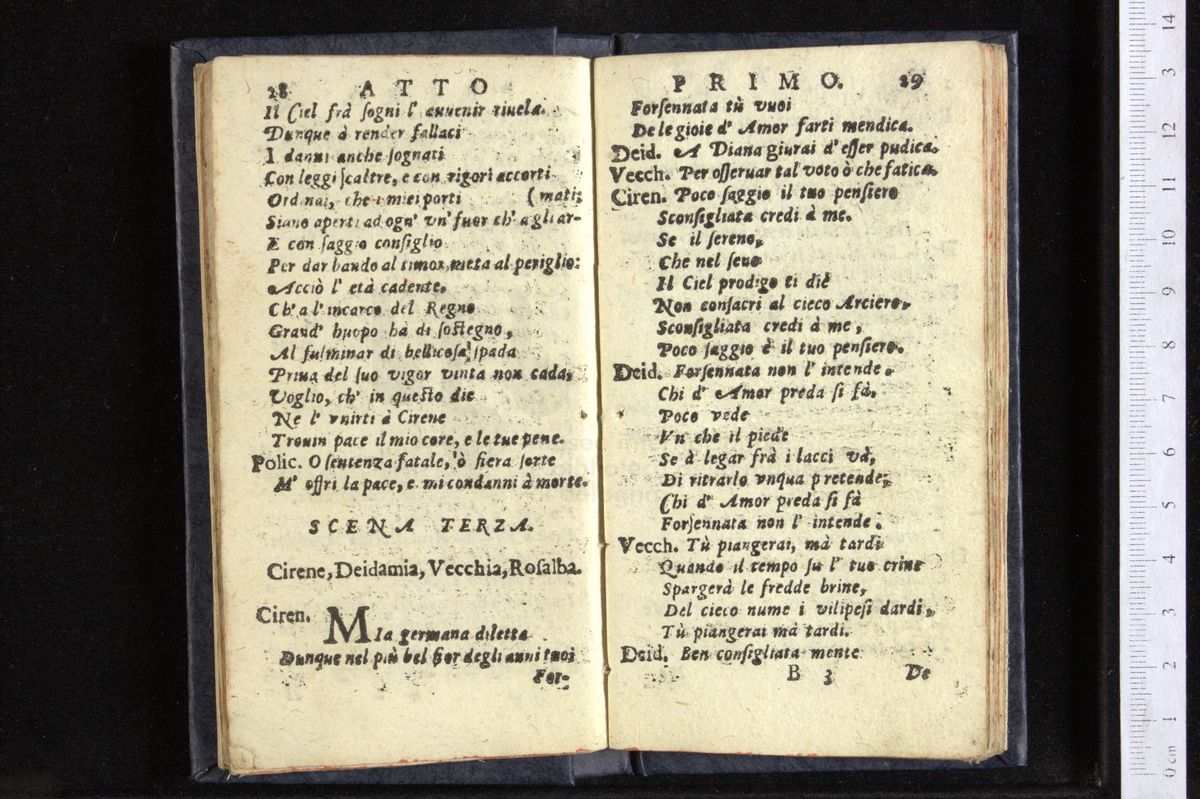 28 ATTO
Il Ciel frà ſogni l' auuenir riuela.
Dunque à render fallaci
I danni anche ſognati
Con leggi ſcaltre, e con rigori accorti
Ordinai, che i miei porti (mati;
Siano aperti ad ogn' vn' fuor ch' agli ar-
E con ſaggio conſiglio
Per dar bando al timor, meta al periglio:
Acciò l' età cadente.
Ch' a l' incarco del Regno
Grand' huopo hà di ſoſtegno,
Al fulminar di bellicoſa ſpada
Priua del ſuo vigor vinta non cada,
Voglio, ch' in queſto die
Ne l' vnirti à Cirene
Trouin pace il mio core, e le tue pene.
Polic. O ſentenza fatale, ò fiera ſorte
M' offri la pace, e mi condanni à morte.
SCENA TERZA.
Cirene, Deidamia, Vecchia, Roſalba.
Ciren. MIa germana diletta
Dunque nel più bel fior degli anni tuoi
For-
PRIMO. 29
Forſennata tù vuoi
De le gioie d' Amor farti mendica.
Deid. A Diana giurai d' eſſer pudica.
Vecch. Per oſſeruar tal voto ò che fatica.
Ciren. Poco ſaggio il tuo penſiero
Sconſigliata credi à me.
Se il ſereno,
Che nel ſeno
Il Ciel prodigo ti diè
Non conſacri al cieco Arciero,
Sconſigliata credi à me,
Poco ſaggio è il tuo penſiero.
Deid. Forſennata non l' intende.
Chi d' Amor preda ſi fà.
Poco vede
Vn che il piede
Se à legar frà i lacci và,
Di ritrarlo vnqua pretende,
Chi d' Amor preda ſi fà
Forſennata non l' intende.
Vecch. Tù piangerai, mà tardi
Quando il tempo ſu l' tuo crine
Spargerà le fredde brine,
Del cieco nume i vilipeſi dardi,
Tù piangerai mà tardi.
Deid. Ben conſigliata mente
B 3 De
0 cm 1 2 3 4 5 6 7 8 9 10 11 12 13 14